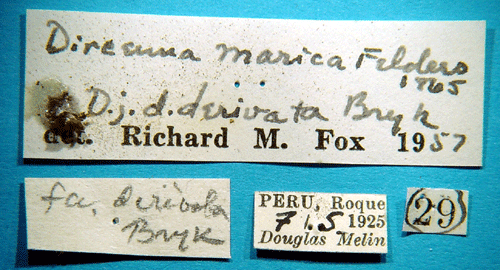 Dircenna marica Felders
1865
D. j. d. derivata Bryk
det. Richard M. Fox 1957
fa. derivata
Bryk
PERU, Roque
7 1.5 1925
Douglas Melin
(29)